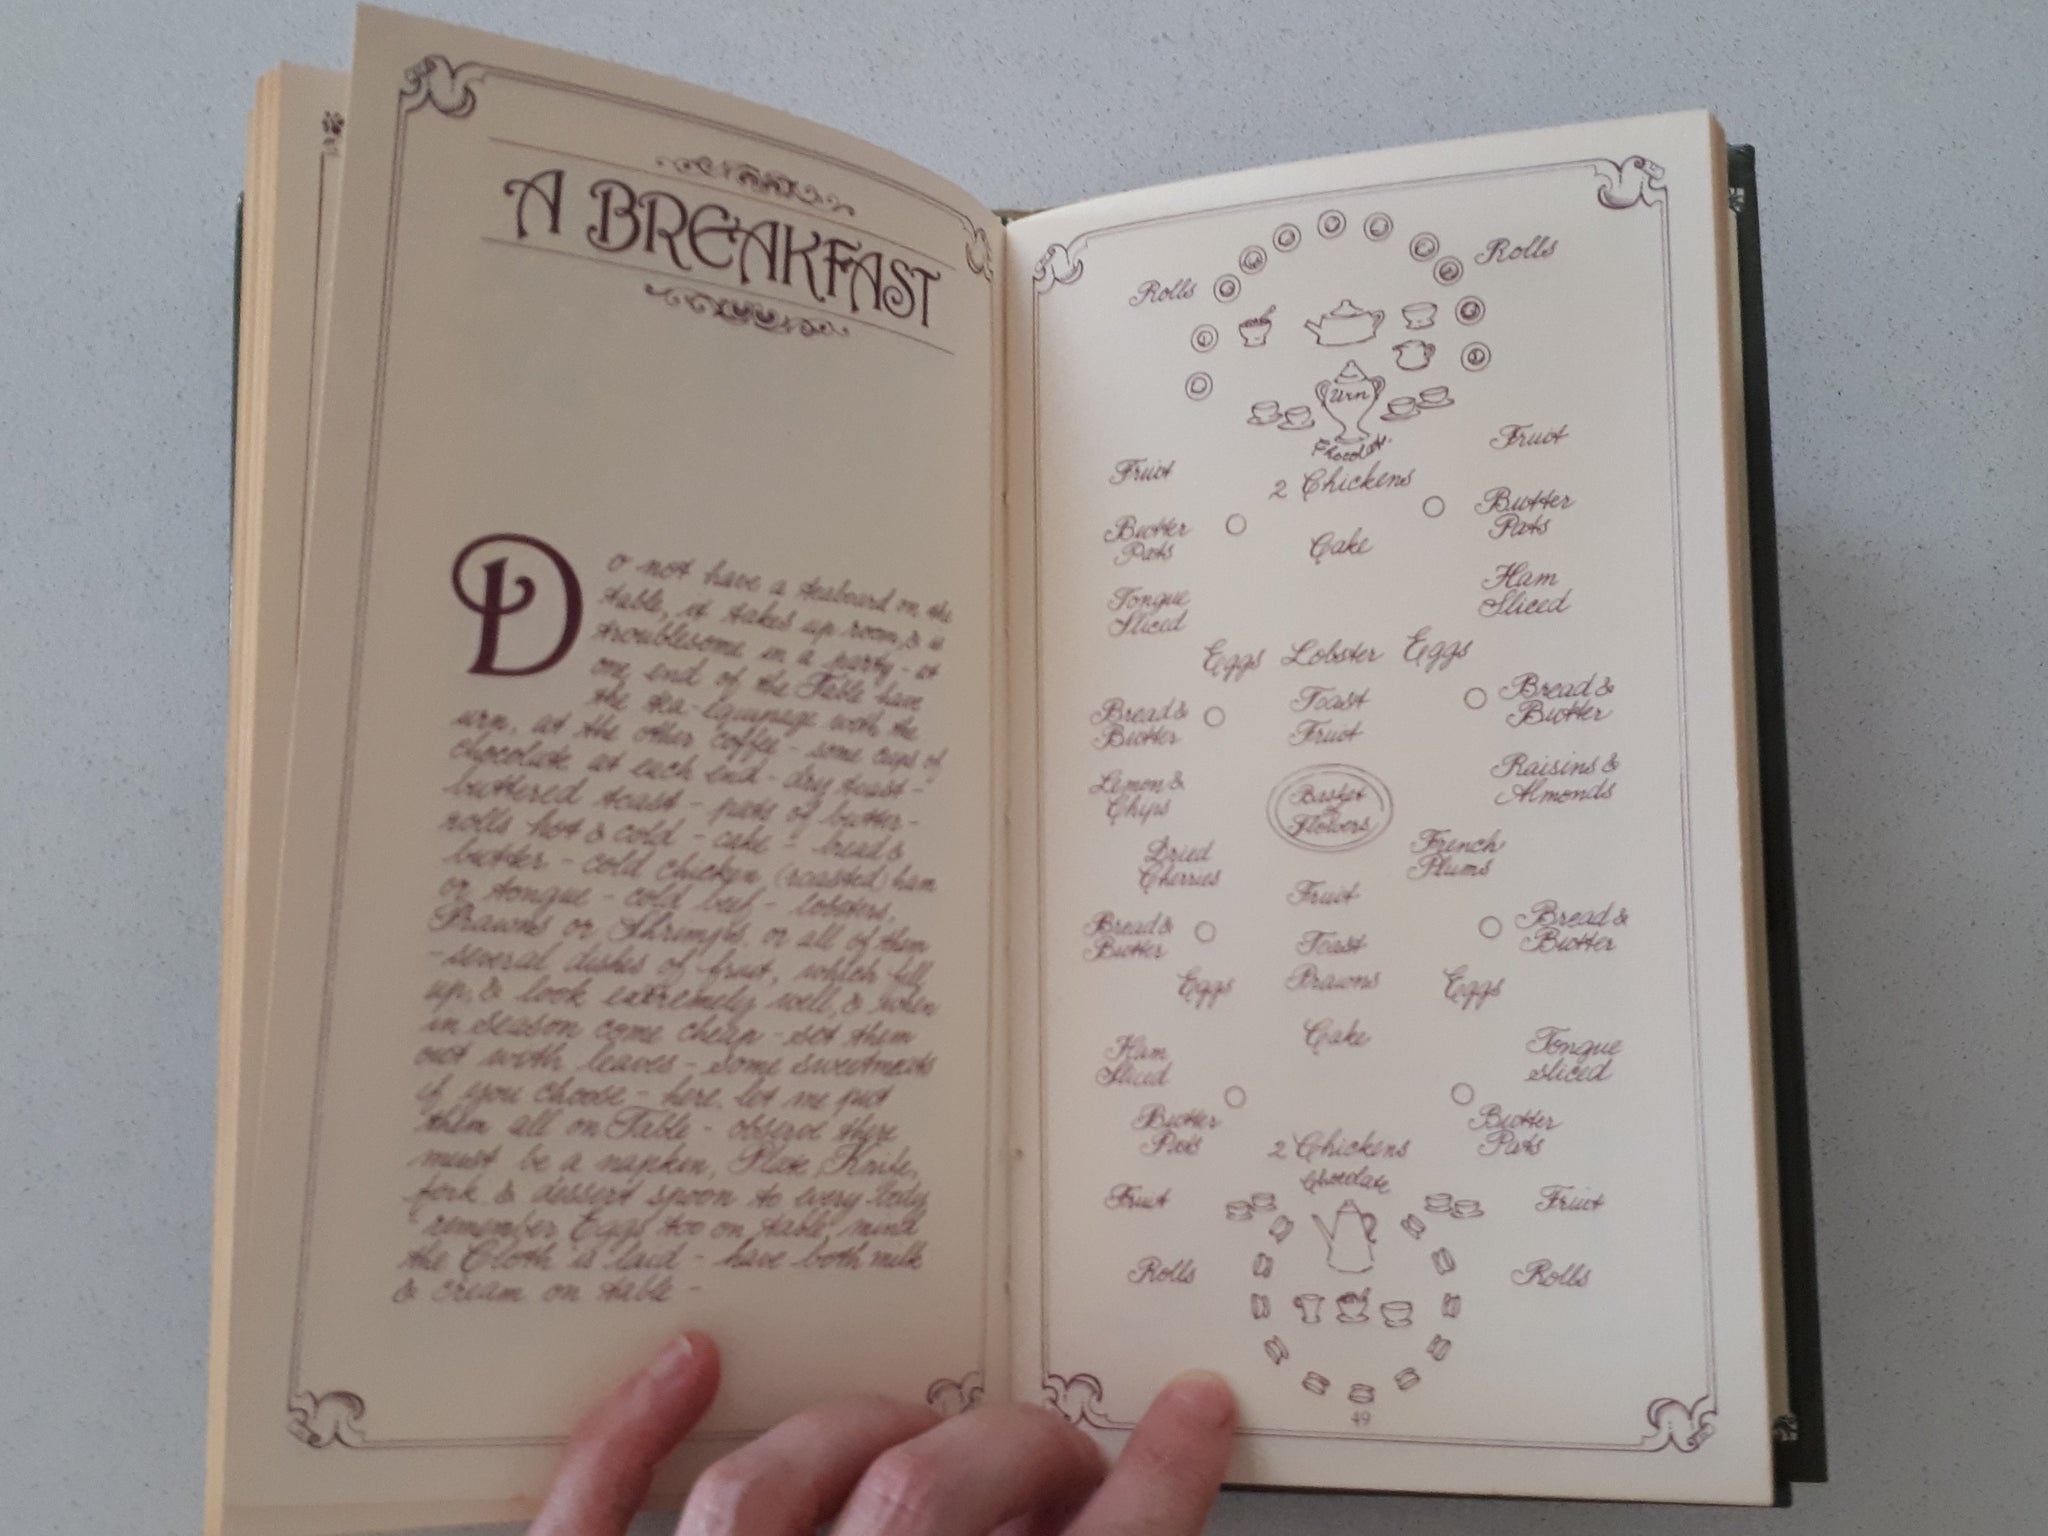 A BREAKFAST
Do not have a teaboard on the
table, it takes up room, & is
troublesome in a party - at
one end of the Table have
the tea-equipage with the
urn, at the other coffee - some cups of
chocolate at each end - dry toast -
buttered toast - pats of butter -
rolls hot & cold - cake - bread &
butter - cold chicken (roasted) ham
or tongue - cold beef - lobsters,
Prawns or Shrimps, or all of them
- several dishes of fruit, which fill
up, & look extremely well, & when
in season come cheap - set them
out with leaves - some sweetmeats
if you choose - here let me put
them all on Table - observe there
must be a napkin, Plate, Knife,
fork & dessert spoon to every body
remember Eggs too on table, mind
the Cloth is laid - have both milk
& cream on table -
Rolls
Rolls
Urn
Chocolate
Fruit
Fruit
2 Chickens
Butter
Pats
Butter
Pats
Cake
Tongue
Sliced
Ham
Sliced
Eggs Lobster Eggs
Bread &
Butter
Toast
Fruit
Bread &
Butter
Lemon &
Chips
Basket
of
Flowers
Raisins &
Almonds
Dried
Cherries
French
Plums
Fruit
Bread &
Butter
Toast
Bread &
Butter
Eggs Prawns Eggs
Cake
Ham
Sliced
Tongue
sliced
Butter
Pats
Butter
Pats
2 Chickens
Chocolate
Fruit
Fruit
Rolls
Rolls
49